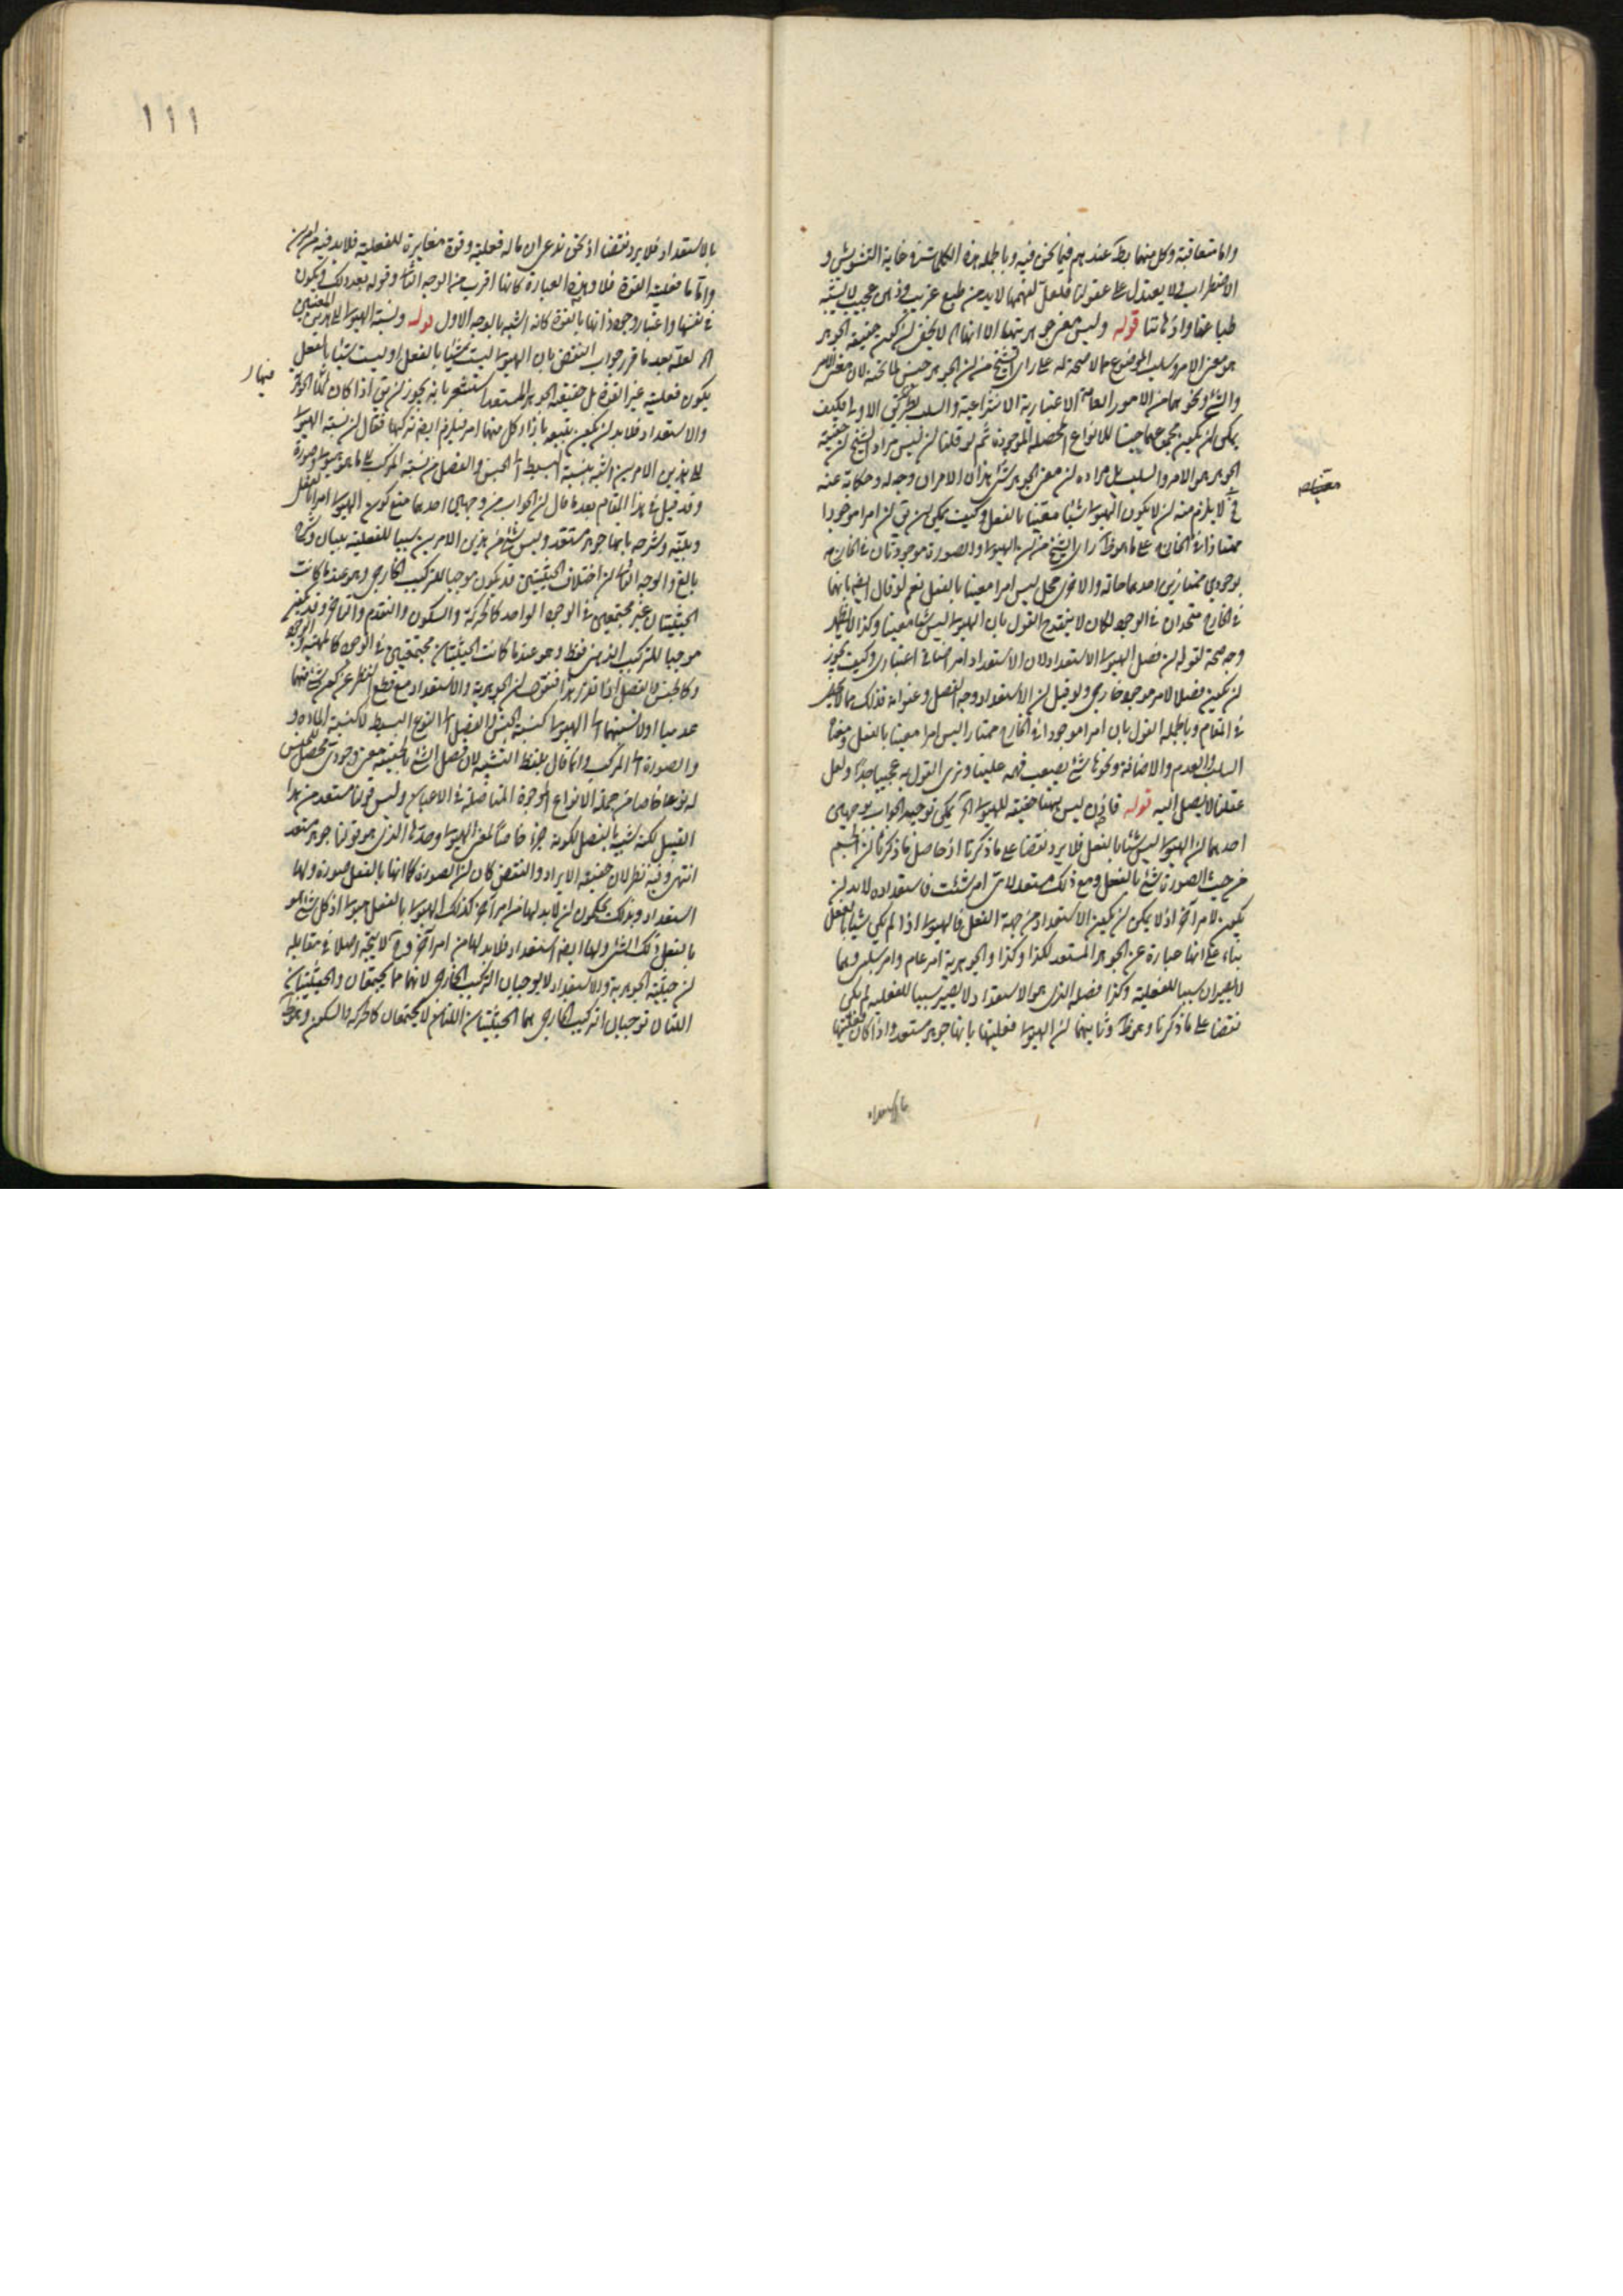 واما متعاقبة وكل منهما بط عندهم فيما نحن فيه وبالجملة هذه الكلمات في غاية التشويش و
الاضطراب ولا يعتدل على عقولنا فلعل لفهمها لابد من طبع غريب وذهن عجيب لا يشبه
طباعنا واذهاننا قوله وليس معنى جوهريتها الا انها اه لا يخفى ان كون حقيقة الجوهر
هو معنى الامر وسلب الموضوع مما لا صحة له على راى الشيخ من ان الجوهر جنس لما تحته لان معنى الامر
والشئ ونحوهما من الامور العامة الاعتبارية الانتزاعية والسلب بطريق الاولى فكيف
يمكن ان يكون مجموعهما جنسا للانواع المحصلة الموجودة ثم لو قلنا ان ليس مراد الشيخ ان حقيقة
الجوهر هو الامر والسلب بل مراده ان معنى الجوهر شئ هذان الامران وجه له وحكاية عنه
فح لا يلزم منه ان لا يكون الهيولى شيئا متعينا بالفعل وكيف يمكن ان يق ان امرا موجودا
ممتازا في الخارج على ما هو ظ راى الشيخ من ان الهيولى والصورة موجودتان في الخارج
بوجودين ممتازين احدهما حالة والاخرى محل ليس امرا معينا بالفعل نعم لو قال الشيخ بانهما
في الخارج متحدان في الوجود لكان لا ينقدح القول بان الهيولى ليس شيئا متعينا وكذا لا يظهر
وجه صحة لقوله ان فصل الهيولى الاستعداد لان الاستعداد امر اضافى اعتبارى وكيف يجوز
ان يكون فصلا لامر موجود خارجى ولو قيل ان الاستعداد وجه الفصل وعنوانه فذلك مما لا يظهر
في المقام وبالجملة القول بان امرا موجودا في الخارج ممتازا ليس امرا معينا بالفعل ومعناه
السلب والعدم والاضافة ونحوها شئ يصعب فهمه علينا ونرى القول به عجيبا جدا ولعل
عقلنا لا يصل اليه قوله فاذن ليس ههنا حقيقة للهيولى اه يمكن توجيه الجواب بوجهين
احدهما ان الهيولى ليس شيئا بالفعل فلا يرد نقضا على ما ذكرنا اذ حاصل ما ذكرنا ان الجسم
من حيث الصورة شئ بالفعل ومع ذلك مستعد لاى امر شئت فاستعداده لابد ان
يكون لامر آخر اذ لا يمكن ان يكون الاستعداد من جهة الفعل فالهيولى اذا لم يكن شيئا بالفعل
بناء على انها عبارة عن الجوهر المستعد لكذا وكذا والجوهرية امر عام وامر سلبى وهما
لا يصيران سببا للفعلية وكذا فصله الذى هو الاستعداد لا يصير سببا للفعلية لم يكن
نقضا على ما ذكرنا وهو ظ وثانيهما ان الهيولى فعليتها بانها جوهر مستعد واذا كان فعليتها
بالاستعداد
١١١
بالاستعداد فلا يرد نقضا اذ نحن ندعى ان ما له فعلية وقوة مغايرة للفعلية فلابد فيه من امرين
واما ما فعليته القوة فلا وهذه العبارة كانها اقرب من الوجه الثانى وقوله بعد ذلك فيكون
في نفسها واعتبار وجود ذاتها بالقوة كانه اشبه بالوجه الاول قوله ونسبة الهيولى الى هذين المعنيين
اه لعله بعد ما قرر جواب النقض بان الهيولى ليست شيئا بالفعل او ليست شيئا بالفعل
يكون فعليته غير القوة بل حقيقة الجوهر المستعد استشعر بانه يجوز ان يق اذا كان لها الجوهر
والاستعداد فلابد ان يكون بازاء كل منهما امر فيلزم ايضا تركبها فقال ان نسبة الهيولى
الى هذين الامرين اشبه بنسبة البسيط الى الجنس والفصل من نسبة المركب الى ما هو هيولى وصورة
وقد قيل في هذا المقام بعد ما قال ان الجواب من وجهين احدهما منع كون الهيولى امرا بالفعل
وبينه وشرحه بانها جوهر مستعد وليس شئ من هذين الامرين سببا للفعلية ببيان
بالغ والوجه الثانى ان اختلاف الحيثيتين قد يكون موجبا للتركيب الخارجى وهو عندما كانت
الحيثيتان غير مجتمعين في الوجود الواحد كالحركة والسكون والتقدم والتاخر وقد يكون
موجبا للتركيب الذهنى فقط وهو عندما كانت الحيثيتان مجتمعتين في الوجود كالمهية والوجود
وكالجنس والفصل اذا تقرر هذا فنقول ان الجوهرية والاستعداد مع قطع النظر عن كون شئ منهما
عدميا اولا نسبتهما الى الهيولى كنسبة الجنس والفصل الى النوع البسيط لا كنسبة المادة و
والصورة الى المركب وانما قال بلفظ التشبيه لان فصل الشئ بالحقيقة معنى وجودى محصل للجنس
له نوعا خاصا من جملة الانواع الموجودة المتاصلة في الاعيان وليس قولنا مستعد من هذا
القبيل لكنه شبيه بالفصل لكونه جزءا خاصا لمعنى الهيولى وحدها الذى هو قولنا جوهر مستعد
انتهى وفيه نظر لان حقيقة الايراد والنقض كان ان الصورة كما انها بالفعل صورة ولها
استعداد وبذلك يحكمون ان لابد لها من امر آخر كذلك الهيولى بالفعل هيولى اذ كل شئ هو
بالفعل ذلك الشئ ولها ايضا استعداد فلابد لها من امر آخر وح لا يتجه اصلا في مقابله
ان حيثية الجوهرية والاستعداد لا يوجبان التركيب الخارجى لانهما مما يجتمعان والحيثيتان
اللتان توجبان التركيب الخارجى هما الحيثيتان اللتان لا يجتمعان كالحركة والسكون وهو ظ